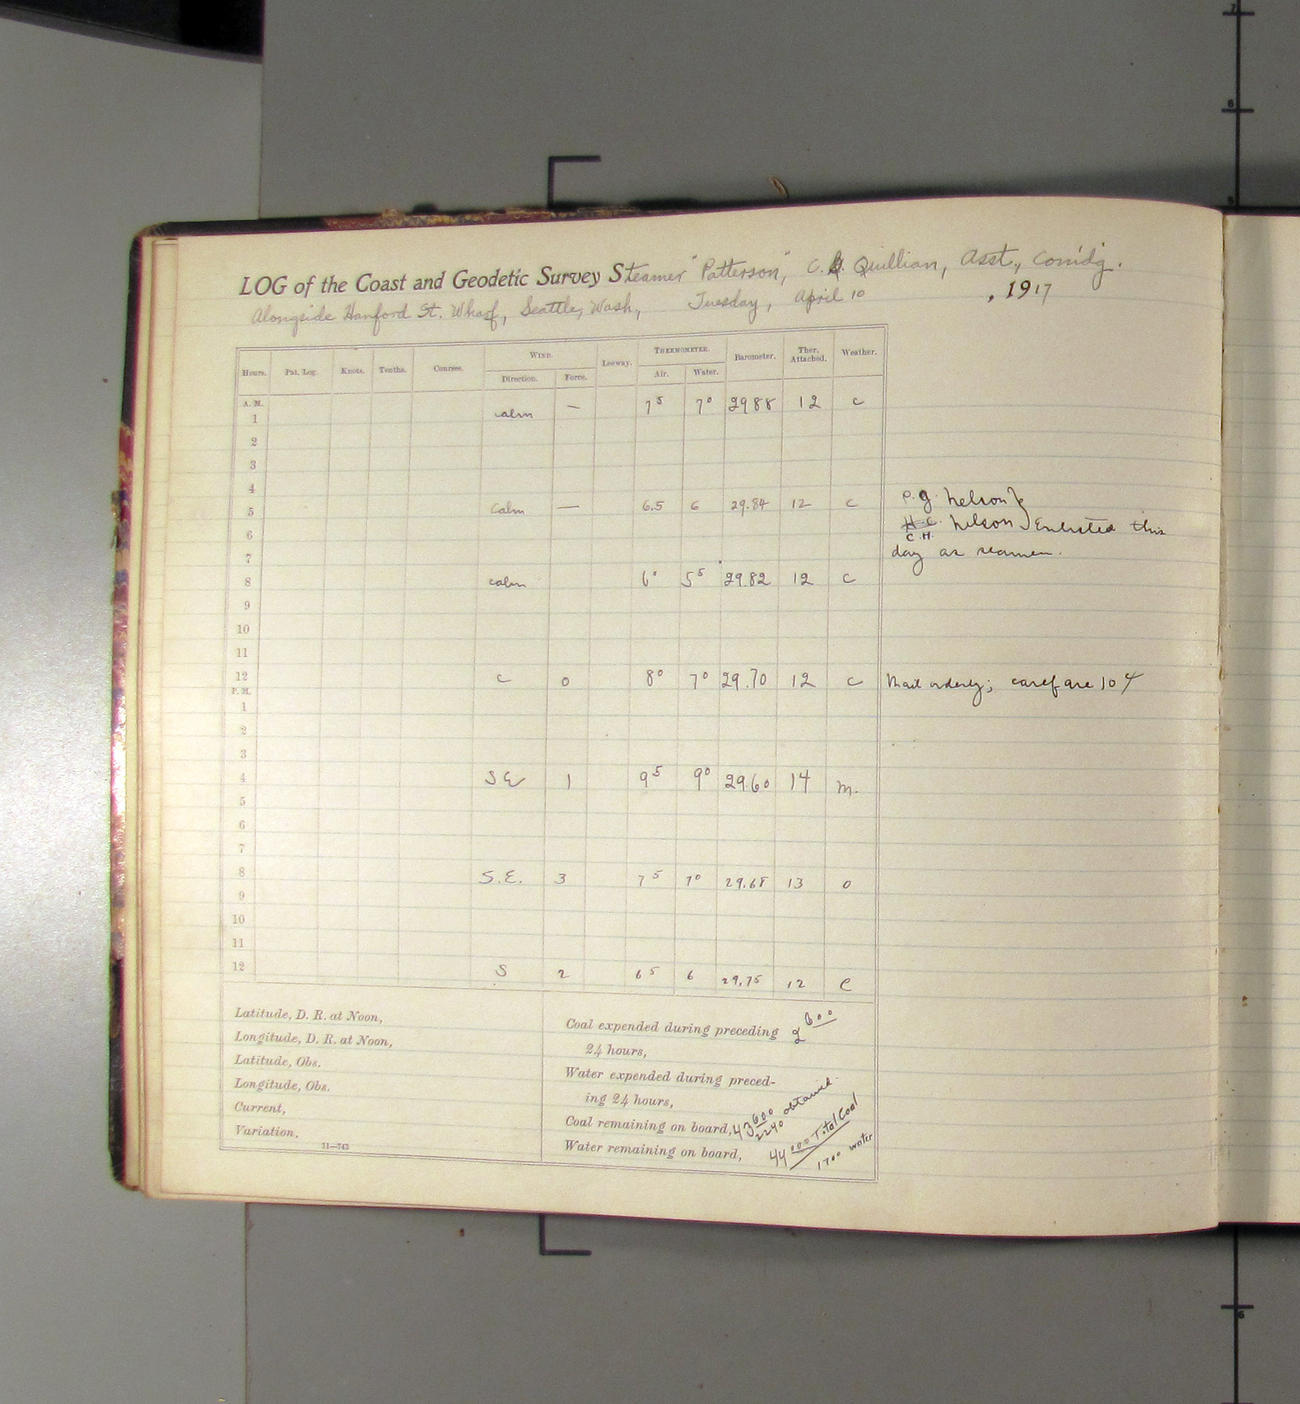 LOG of the Coast and Geodetic Survey Steamer "Patterson," C. G. Quillian, Asst., Com'dg.
Alongside Hanford St. Wharf, Seattle, Wash, Tuesday, April 10, 1917
Hours. Pat. Log. Knots. Tenths. Courses. WIND. Leeway. THERMOMETER. Barometer. Ther. Attached. Weather.
Direction. Force. Air. Water.
A. M.
1 calm — 7⁵ 7⁰ 2988 12 c
2
3
4
5 Calm — 6.5 6 29.84 12 c
6
7
8 calm 6⁰ 5⁵ 29.82 12 c
9
10
11
12 c 0 8⁰ 7⁰ 29.70 12 c
P. M.
1
2
3
4 SE 1 9⁵ 9⁰ 29.60 14 m.
5
6
7
8 S.E. 3 7⁵ 7⁰ 29.68 13 o
9
10
11
12 S 2 6⁵ 6 29.75 12 c
P. G. Nelson }
H C Nelson } Enlisted this
C.H.
day as seamen.
Mail orderly; carefare 10 ¢
Latitude, D. R. at Noon,
Longitude, D. R. at Noon,
Latitude, Obs.
Longitude, Obs.
Current,
Variation,
11—743
Coal expended during preceding
24 hours,
Water expended during preced-
ing 24 hours,
Coal remaining on board, 43600
2240 obtained
Water remaining on board, 44000 Total Coal
1700 water